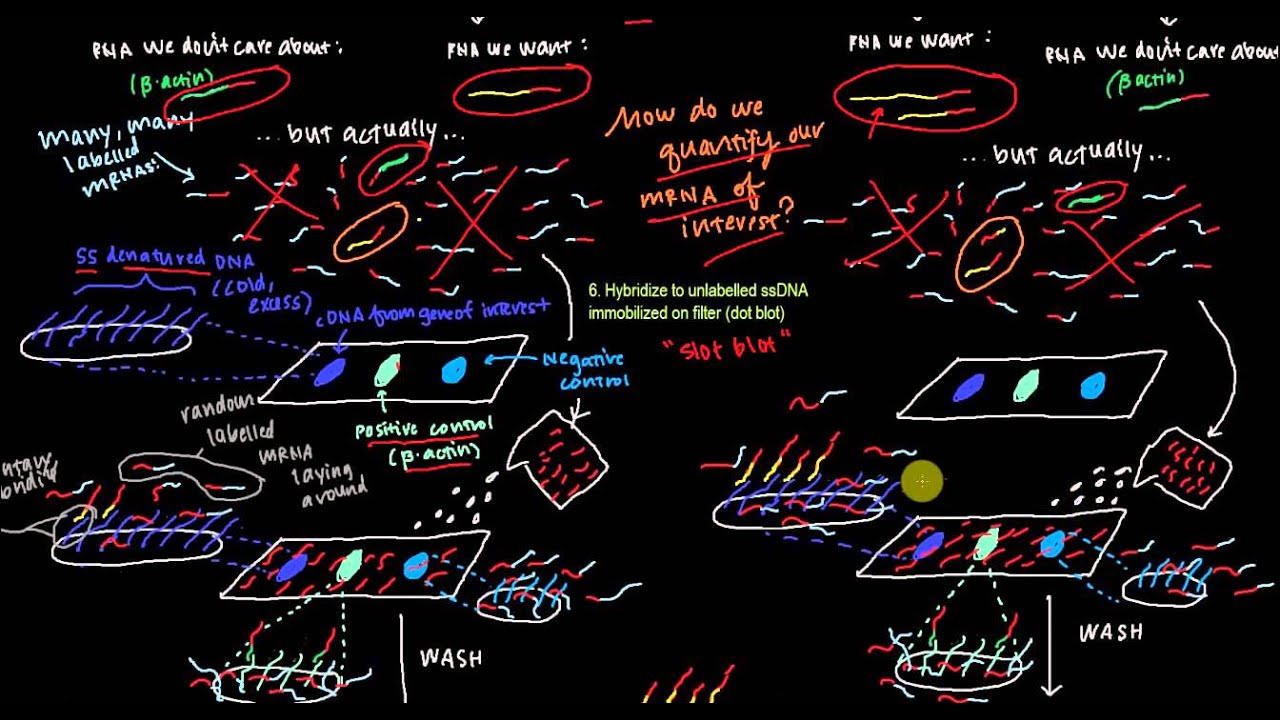 RNA we don't care about:
(β-actin)
RNA we want:
RNA we want:
RNA we don't care about
(β actin)
many, many
labelled
mRNAs:
...but actually...
How do we
quantify our
mRNA of
interest?
...but actually...
SS denatured DNA
(cold,
excess)
cDNA from gene of interest
6. Hybridize to unlabelled ssDNA
immobilized on filter (dot blot)
"slot blot"
Negative
control
random
labelled
mRNA
laying
around
positive control
(β-actin)
WASH
WASH